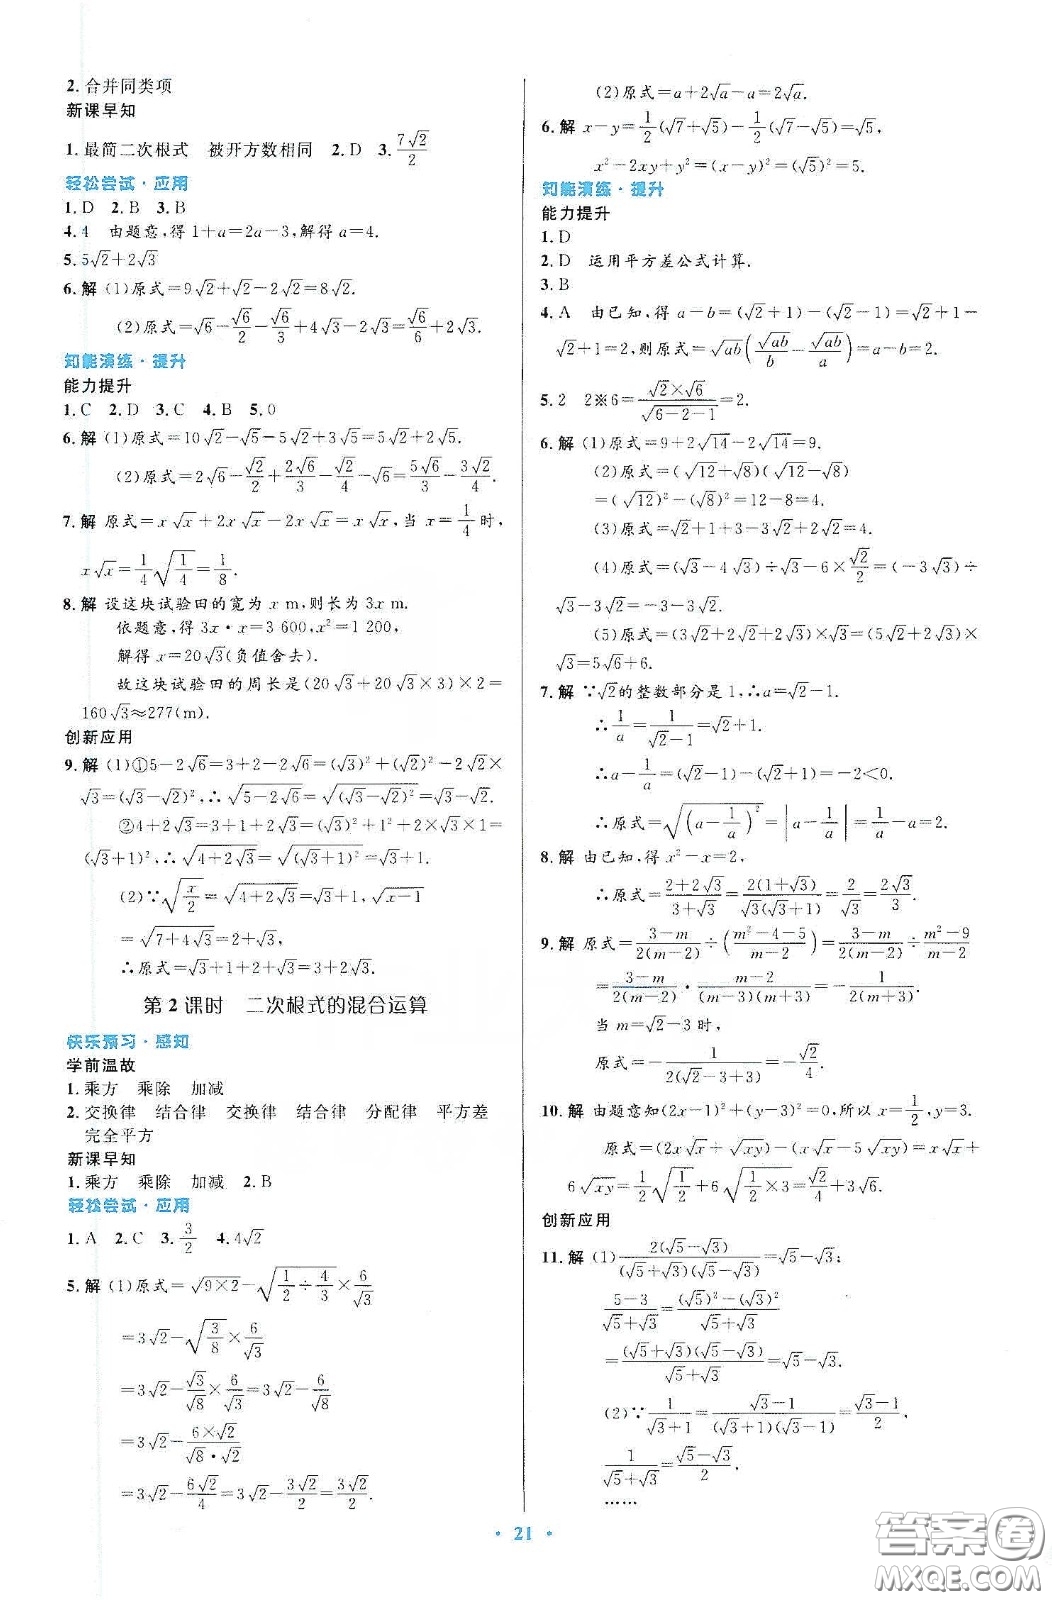 2. 合并同类项
新课早知
1. 最简二次根式 被开方数相同 2. D 3. 7√2/2
轻松尝试·应用
1. D 2. B 3. B
4. 4 由题意,得 1+a=2a-3,解得 a=4.
5. 5√2+2√3
6. 解 (1)原式=9√2+√2-2√2=8√2.
(2)原式=√6-√6/2-√6/3+4√3-2√3=√6/6+2√3.
知能演练·提升
能力提升
1. C 2. D 3. C 4. B 5. 0
6. 解 (1)原式=10√2-√5-5√2+3√5=5√2+2√5.
(2)原式=2√6-√2/2+2√6/3-√2/4-√6=5√6/3-3√2/4.
7. 解 原式=x√x+2x√x-2x√x=x√x,当 x=1/4时,
x√x=1/4√(1/4)=1/8.
8. 解 设这块试验田的宽为 x m,则长为 3x m.
依题意,得 3x·x=3 600,x²=1 200,
解得 x=20√3(负值舍去).
故这块试验田的周长是(20√3+20√3×3)×2=
160√3≈277(m).
创新应用
9. 解 (1)①5-2√6=3+2-2√6=(√3)²+(√2)²-2√2×
√3=(√3-√2)²,∴√(5-2√6)=√((√3-√2)²)=√3-√2.
②4+2√3=3+1+2√3=(√3)²+1²+2×√3×1=
(√3+1)²,∴√(4+2√3)=√((√3+1)²)=√3+1.
(2)∵√(x/2)=√(4+2√3)=√3+1,√(x-1)
=√(7+4√3)=2+√3,
∴原式=√3+1+2+√3=3+2√3.
第2课时 二次根式的混合运算
快乐预习·感知
学前温故
1. 乘方 乘除 加减
2. 交换律 结合律 交换律 结合律 分配律 平方差
完全平方
新课早知
1. 乘方 乘除 加减 2. B
轻松尝试·应用
1. A 2. C 3. 3/2 4. 4√2
5. 解 (1)原式=√(9×2)-√(1/2÷4/3)×6/√3
=3√2-√(3/8)×6/√3
=3√2-√3/√8×6/√3=3√2-6/√8
=3√2-(6×√2)/(√8·√2)
=3√2-6√2/4=3√2-3√2/2=3√2/2.
(2)原式=a+2√a-a=2√a.
6. 解 x-y=1/2(√7+√5)-1/2(√7-√5)=√5,
x²-2xy+y²=(x-y)²=(√5)²=5.
知能演练·提升
能力提升
1. D
2. D 运用平方差公式计算.
3. B
4. A 由已知,得 a-b=(√2+1)-(√2-1)=√2-
√2+1=2,则原式=√ab(√ab/b-√ab/a)=a-b=2.
5. 2 2※6=(√2×√6)/√(6-2-1)=2.
6. 解 (1)原式=9+2√14-2√14=9.
(2)原式=(√12+√8)(√12-√8)
=(√12)²-(√8)²=12-8=4.
(3)原式=√2+1+3-3√2+2√2=4.
(4)原式=(√3-4√3)÷√3-6×√2/2=(-3√3)÷
√3-3√2=-3-3√2.
(5)原式=(3√2+2√2+2√3)×√3=(5√2+2√3)×
√3=5√6+6.
7. 解 ∵√2的整数部分是 1,∴a=√2-1.
∴1/a=1/(√2-1)=√2+1.
∴a-1/a=(√2-1)-(√2+1)=-2<0.
∴原式=√((a-1/a)²)=|a-1/a|=1/a-a=2.
8. 解 由已知,得 x²-x=2,
∴原式=(2+2√3)/(3+√3)=2(1+√3)/(√3(√3+1))=2/√3=2√3/3.
9. 解 原式=(3-m)/(2(m-2))÷((m²-4-5)/(m-2))=(3-m)/(2(m-2))÷(m²-9)/(m-2)
=(3-m)/(2(m-2))·(m-2)/((m-3)(m+3))=-1/(2(m+3)).
当 m=√2-3时,
原式=-1/(2(√2-3+3))=-√2/4.
10. 解 由题意知(2x-1)²+(y-3)²=0,所以 x=1/2,y=3.
原式=(2x√x+√xy)-(x√x-5√xy)=x√x+
6√xy=1/2√(1/2)+6√(1/2×3)=√2/4+3√6.
创新应用
11. 解 (1)2(√5-√3)/((√5+√3)(√5-√3))=√5-√3;
(5-3)/(√5+√3)=((√5)²-(√3)²)/(√5+√3)
=((√5+√3)(√5-√3))/(√5+√3)=√5-√3.
(2)∵1/(√3+1)=(√3-1)/((√3+1)(√3-1))=(√3-1)/2,
1/(√5+√3)=(√5-√3)/2.
……
·21·
答案卷
MXQE.COM